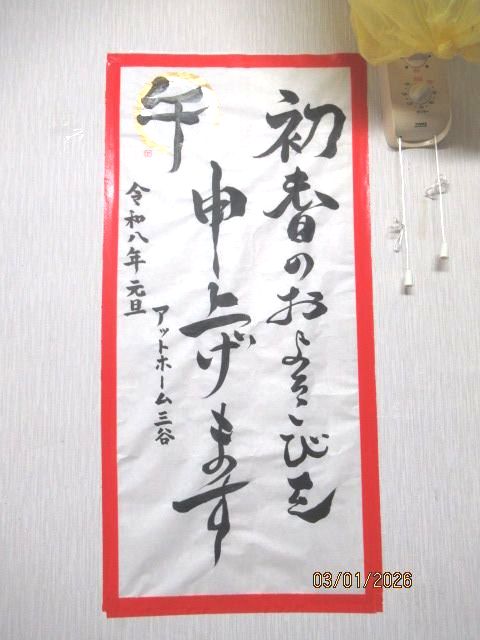 初春のおよろこびを
申上げます
午
令和八年元旦
アットホーム三谷
03/01/2026